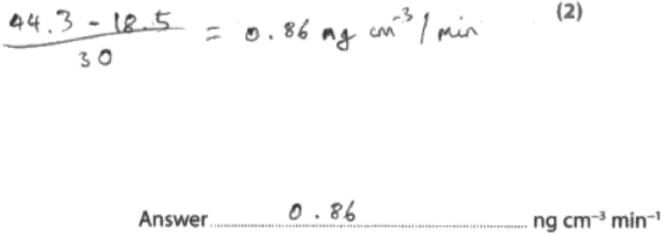 (2)
44.3 - 18.5
30
= 0.86 ng cm⁻³ / min
Answer 0.86 ng cm⁻³ min⁻¹